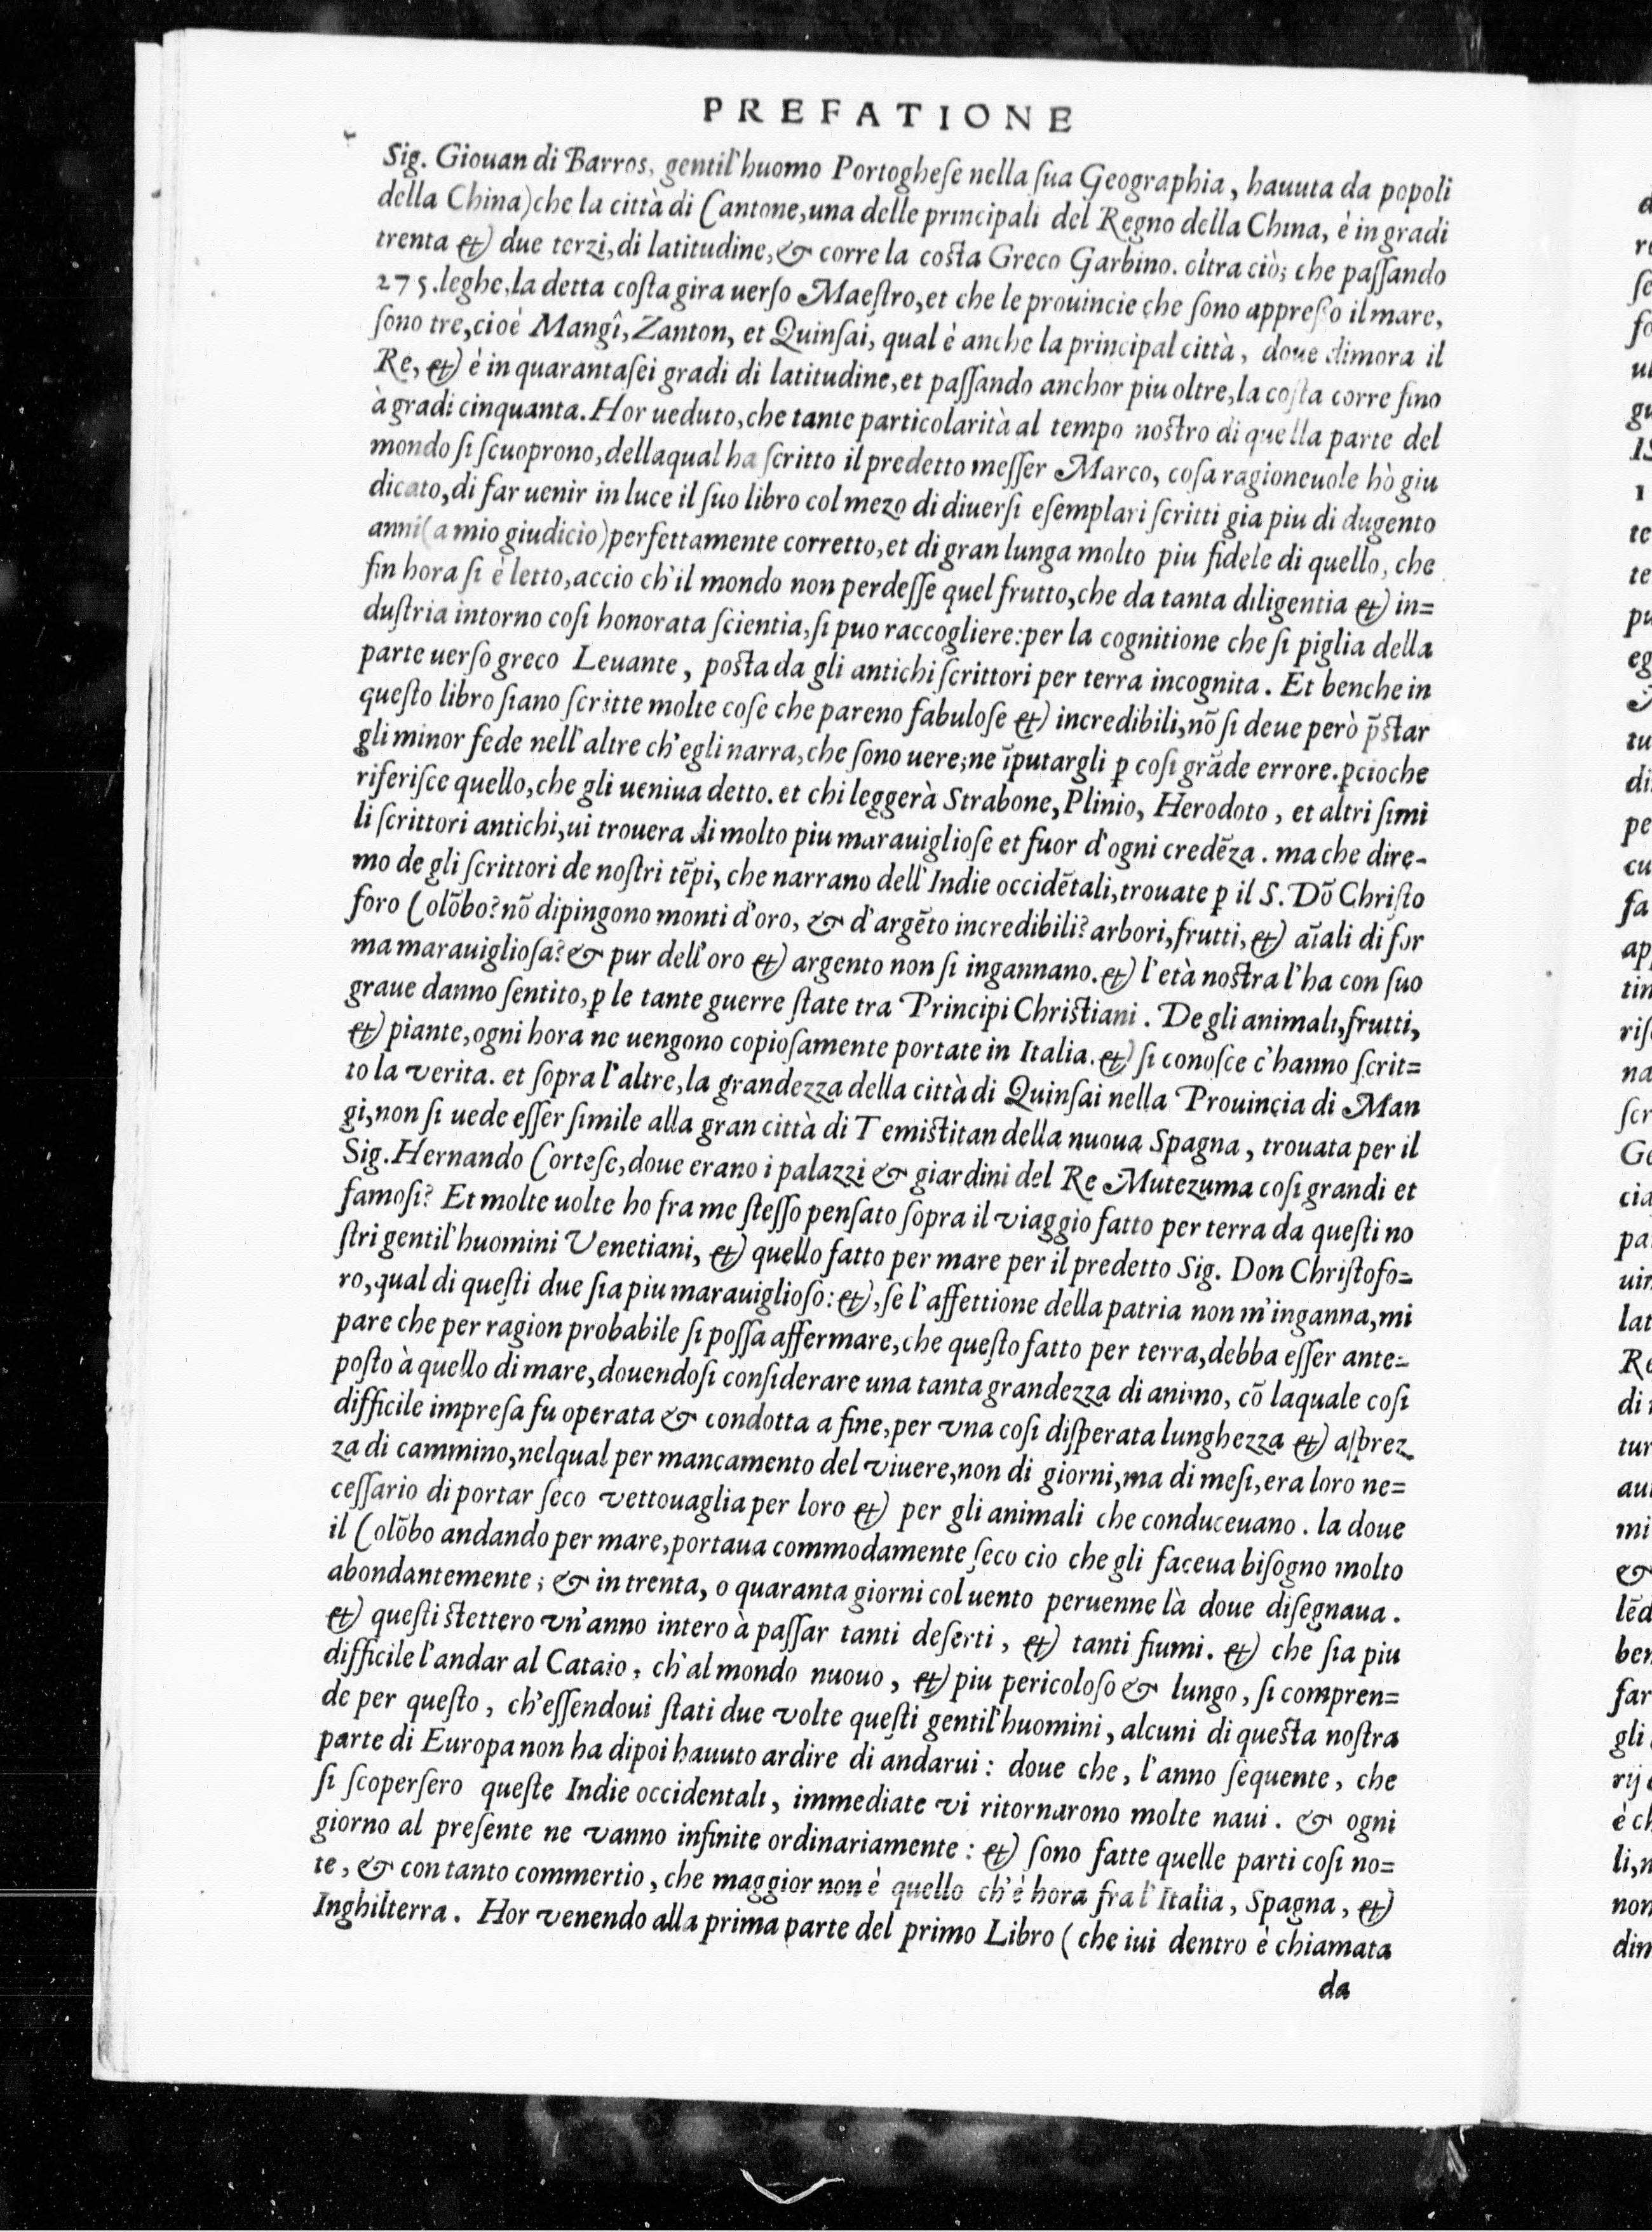 PREFATIONE
Sig. Giouan di Barros, gentil'huomo Portogheſe nella ſua Geographia, hauuta da popoli
della China) che la città di Cantone, una delle principali del Regno della China, è in gradi
trenta & due terzi, di latitudine, & corre la coſta Greco Garbino. oltra ciò; che paſſando
275. leghe, la detta coſta gira uerſo Maeſtro, et che le prouincie che ſono appreſſo il mare,
ſono tre, cioè Mangî, Zanton, et Quinſai, qual è anche la principal città, doue dimora il
Re, & è in quarantaſei gradi di latitudine, et paſſando anchor piu oltre, la coſta corre fino
à gradi cinquanta. Hor ueduto, che tante particolarità al tempo noſtro di quella parte del
mondo ſi ſcuoprono, dellaqual ha ſcritto il predetto meſſer Marco, coſa ragioneuole hò giu
dicato, di far uenir in luce il ſuo libro col mezo di diuerſi eſemplari ſcritti gia piu di dugento
anni (a mio giudicio) perfettamente corretto, et di gran lunga molto piu fidele di quello, che
fin hora ſi è letto, accio ch'il mondo non perdeſſe quel frutto, che da tanta diligentia & in=
duſtria intorno coſi honorata ſcientia, ſi puo raccogliere: per la cognitione che ſi piglia della
parte uerſo greco Leuante, poſta da gli antichi ſcrittori per terra incognita. Et benche in
queſto libro ſiano ſcritte molte coſe che pareno fabuloſe & incredibili, nõ ſi deue però p̃ſtar
gli minor fede nell'altre ch'egli narra, che ſono uere; ne ĩputargli ꝑ coſi grãde errore. ꝑcioche
riferiſce quello, che gli ueniua detto. et chi leggerà Strabone, Plinio, Herodoto, et altri ſimi
li ſcrittori antichi, ui trouera di molto piu marauiglioſe et fuor d'ogni credẽza. ma che dire-
mo de gli ſcrittori de noſtri tẽpi, che narrano dell'Indie occidẽtali, trouate ꝑ il S. Dõ Chriſto
foro Colõbo? nõ dipingono monti d'oro, & d'argẽto incredibili? arbori, frutti, & aĩali di for
ma marauiglioſa? & pur dell'oro & argento non ſi ingannano. & l'età noſtra l'ha con ſuo
graue danno ſentito, ꝑ le tante guerre ſtate tra Principi Chriſtiani. De gli animali, frutti,
& piante, ogni hora ne uengono copioſamente portate in Italia. & ſi conoſce c'hanno ſcrit=
to la verita. et ſopra l'altre, la grandezza della città di Quinſai nella Prouincia di Man
gi, non ſi uede eſſer ſimile alla gran città di Temiſtitan della nuoua Spagna, trouata per il
Sig. Hernando Corteſe, doue erano i palazzi & giardini del Re Mutezuma coſi grandi et
famoſi? Et molte uolte ho fra me ſteſſo penſato ſopra il viaggio fatto per terra da queſti no
ſtri gentil'huomini Venetiani, & quello fatto per mare per il predetto Sig. Don Chriſtofo=
ro, qual di queſti due ſia piu marauiglioſo: &, ſe l'affettione della patria non m'inganna, mi
pare che per ragion probabile ſi poſſa affermare, che queſto fatto per terra, debba eſſer ante=
poſto à quello di mare, douendoſi conſiderare una tanta grandezza di animo, cõ laquale coſi
difficile impreſa fu operata & condotta a fine, per vna coſi diſperata lunghezza & aſprez
za di cammino, nelqual per mancamento del viuere, non di giorni, ma di meſi, era loro ne=
ceſſario di portar ſeco vettouaglia per loro & per gli animali che conduceuano. la doue
il Colõbo andando per mare, portaua commodamente ſeco cio che gli faceua biſogno molto
abondantemente; & in trenta, o quaranta giorni col uento peruenne là doue diſegnaua.
& queſti ſtettero vn'anno intero à paſſar tanti deſerti, & tanti fiumi. & che ſia piu
difficile l'andar al Cataio, ch'al mondo nuouo, & piu pericoloſo & lungo, ſi compren=
de per queſto, ch'eſſendoui ſtati due volte queſti gentil'huomini, alcuni di queſta noſtra
parte di Europa non ha dipoi hauuto ardire di andarui: doue che, l'anno ſequente, che
ſi ſcoperſero queſte Indie occidentali, immediate vi ritornarono molte naui. & ogni
giorno al preſente ne vanno infinite ordinariamente: & ſono fatte quelle parti coſi no=
te, & con tanto commertio, che maggior non è quello ch'è hora fra l'Italia, Spagna, &
Inghilterra. Hor venendo alla prima parte del primo Libro (che iui dentro è chiamata
da